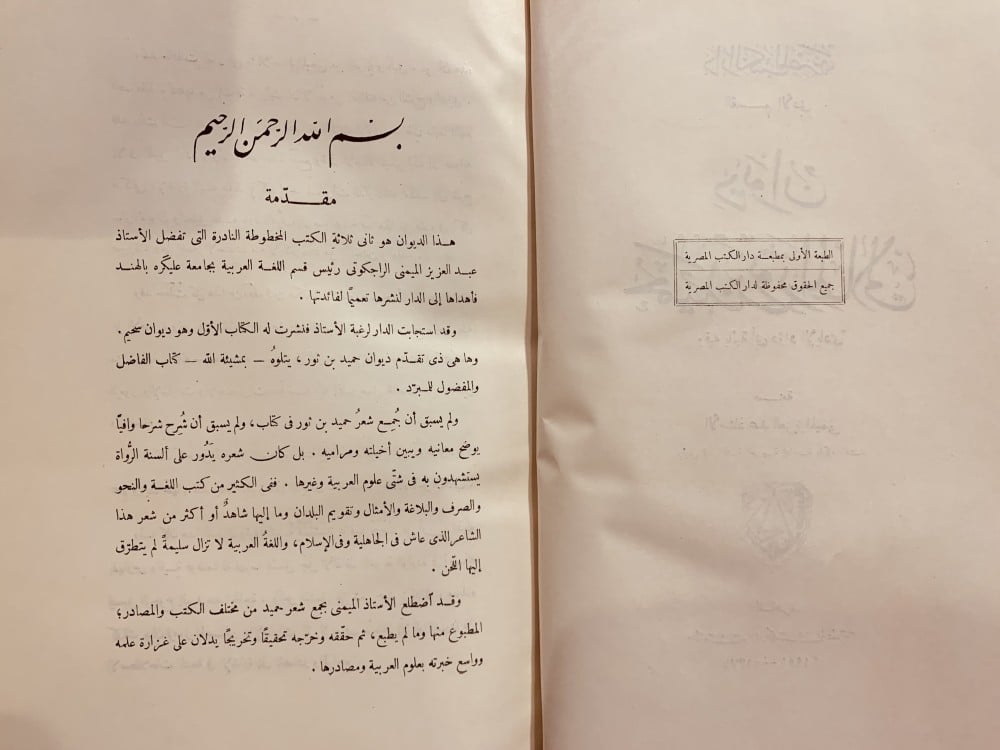 الطبعة الأولى بمطبعـة دار الكتب المصرية
جميع الحقوق محفوظة لدار الكتب المصرية
بسم الله الرحمن الرحيم
مقـــدّمة
هـذا الديوان هو ثانى ثلاثةِ الكتب المخطوطة النادرة التى تفضل الأستاذ
عبد العزيز الميمنى الراجكوتى رئيس قسم اللغة العربية بجامعة عليكَره بالهند
فأهداها إلى الدار لنشرها تعميًا لفائدتها .
وقد استجابت الدار لرغبة الأستاذ فنشرت له الكتاب الأوّل وهو ديوان سحيم.
وها هى ذى تقـدّم ديوان حميد بن ثور ، يتلوهُ — بمشيئة الله — كتاب الفاضل
والمفضول للمـبرّد .
ولم يسبق أن جُمِـع شعرُ حميد بن ثور فى كتاب، ولم يسبق أن شُرِح شرحا وافيًا
يوضح معانيه ويبين أخيلته ومراميه . بل كان شعره يَدُور على ألسنة الرُّواة
يستشهدون به فى شتَّى علوم العربية وغيرها . ففى الكثير من كتب اللغـة والنحو
والصرف والبلاغة والأمثال وتقويم البلدان وما إليها شاهدٌ أو أكثر من شعر هذا
الشاعر الذى عاش فى الجاهلية وفى الإسلام، واللغةُ العربية لا تزال سليمةً لم يتطرّق
إليها اللَّحن .
وقـد ٱضطلع الأستاذ الميمنى بجمع شعر حميد من مختلف الكتب والمصادر؛
المطبوع منها وما لم يطبع، ثم حقّقه وخرّجه تحقيقًا وتخريجًا يدلان على غزارة علمه
وواسع خبرته بعلوم العربية ومصادرها .